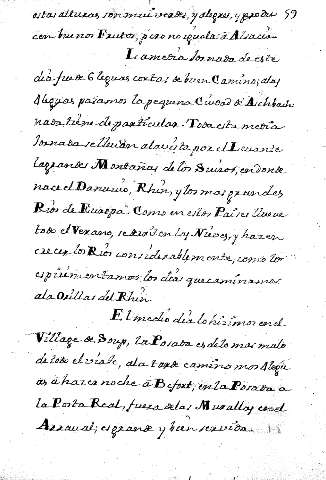 estas alturas, son mui verdes, y alegres, y produ- 59
cen buenos Frutos, pero no iguala à Alsacia.
La media Jornada de este
dia fue de 6 leguas cortas de buen Camino; a las
4 leguas pasamos la pequeña Ciudad de
nada tiene de particular. Toda esta media
Jornada se lleban a la vista por el Levante
las grandes Montañas de los Suizos, en donde
nace el Danuvio, Rhin, y los mas grandes
Rios de Europa. Como en estos Paises llueve
todo el Verano, se en las Nieves, y hazen
crecer los Rios considerablemente, como los
esperimentamos los dias que caminamos
a la Orillas del Rhin.
El medio dia lo hizimos en el
Village de Soup, la Posada es de lo mas malo
de todo el viaje, a la tarde caminamos 4 legu-
as à hazer noche à Befort, en la Posada a
la Posta Real, fuera de las Murallas en el
Arraval; es grande y bien servida.